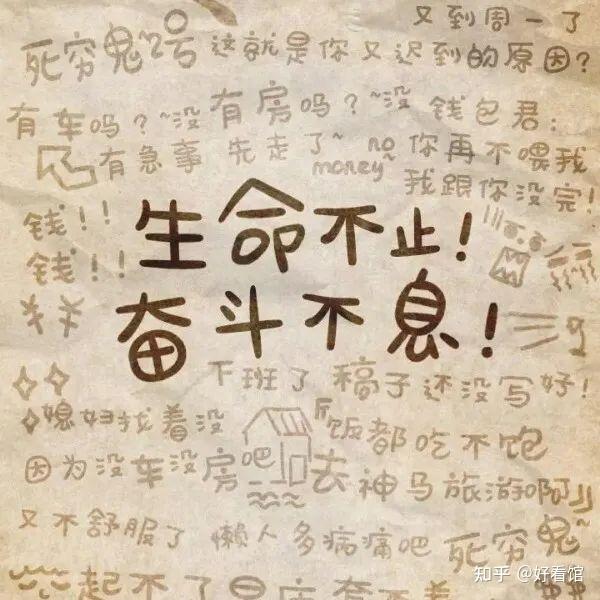 又到周一了
死穷鬼~2号 这就是你又迟到的原因?
有车吗?~没有房吗?~没 钱包君:
有急事 先走了~ no money~ 你再不喂我
我跟你没完!
钱!!
钱!!
生命不止!
奋斗不息!
下班了 稿子还没写好!
媳妇找着没
饭都吃不饱
因为没车没房吧 去神马旅游啊
又不舒服了 懒人多病痛吧 死穷鬼~
知乎 @好看馆